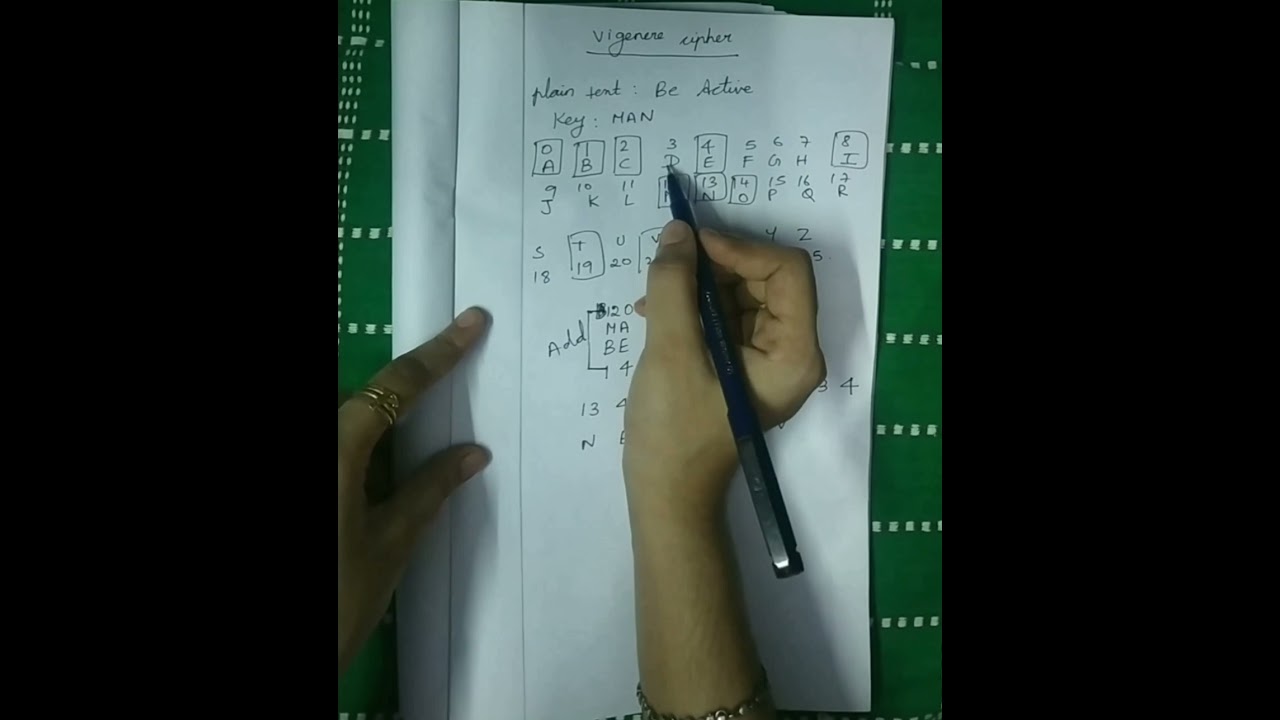 Vigenere cipher
plain text : Be Active
Key : MAN
0 1 2 3 4 5 6 7 8
A B C D E F G H I
9 10 11 13 14 15 16 17
J K L N O P Q R
S T U V Y Z
18 19 20
12 0
MA
Add
BE
1 4
3 4
13 4
N E